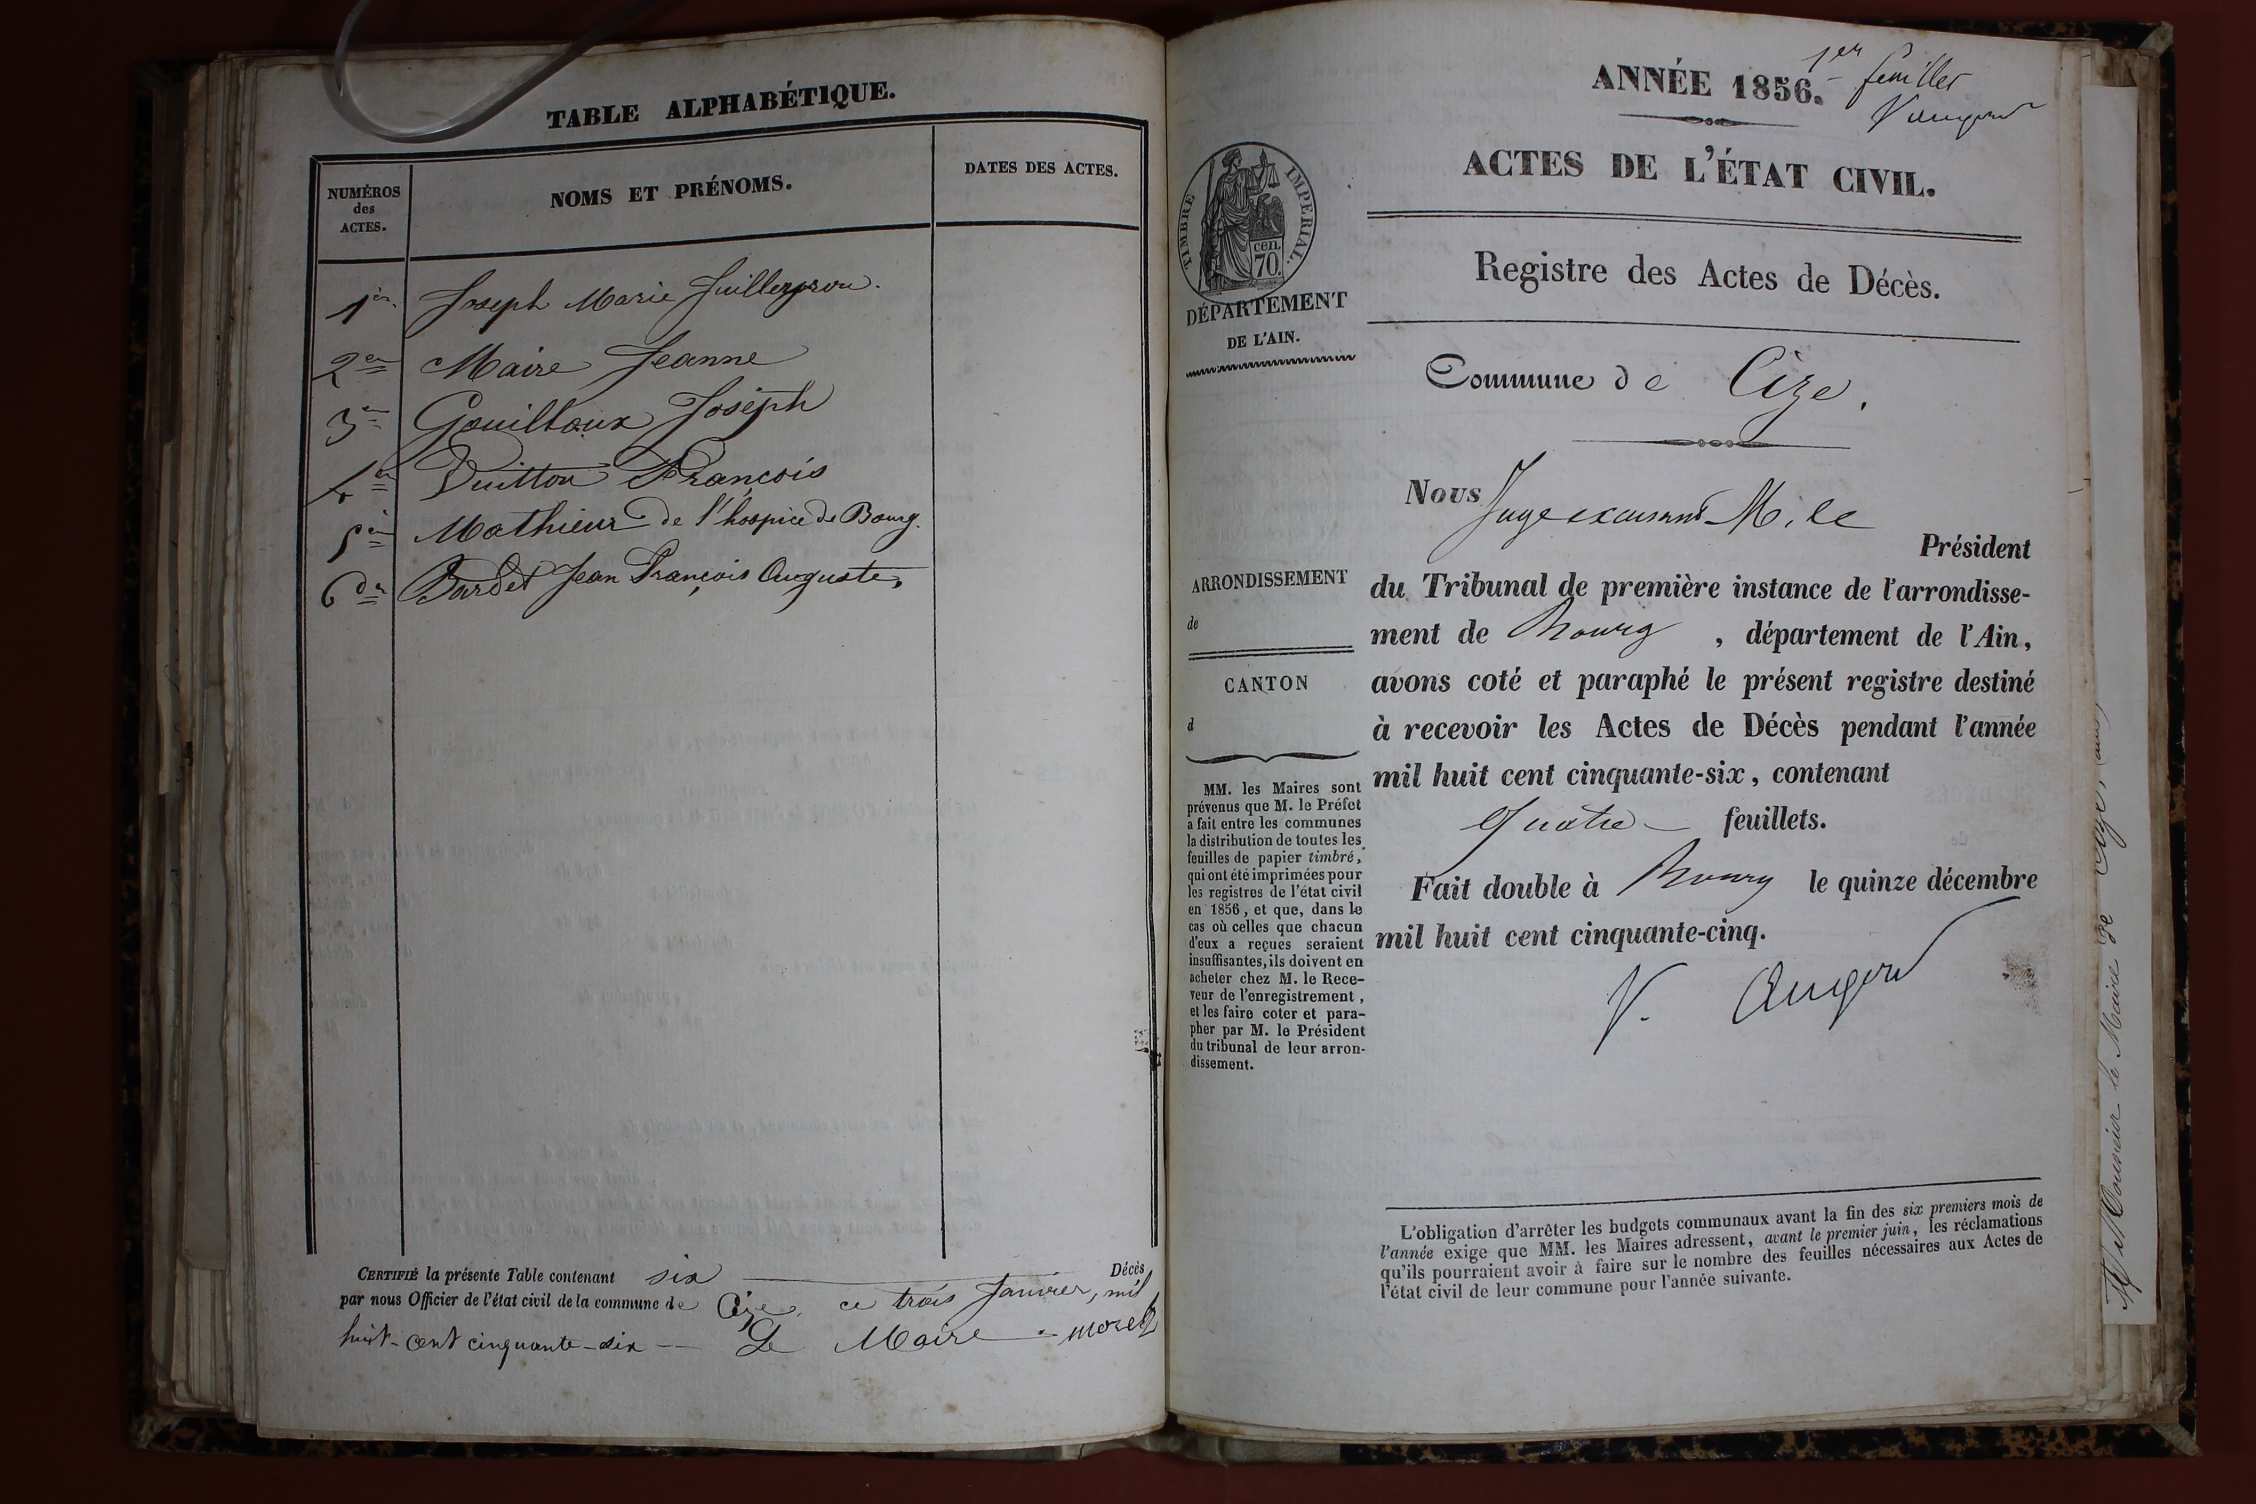 TABLE ALPHABÉTIQUE.
NUMÉROS
des
ACTES.
NOMS ET PRÉNOMS.
DATES DES ACTES.
1er Joseph Marie Juilleyrou.
2em Maire Jeanne
3em Gouilloux Joseph
4em Vuitton François
5em Mathieur de l'hospice de Bourg.
6em Bardet Jean François Auguste,
CERTIFIÉ la présente Table contenant six Décès
par nous Officier de l'état civil de la commune de Cize, ce trois Janvier, mil
huit-cent cinquante-six Le Maire morel
1er feuillet
ANNÉE 1856.
ACTES DE L'ÉTAT CIVIL.
TIMBRE IMPERIAL.
cen.
70.
DÉPARTEMENT
DE L'AIN.
Registre des Actes de Décès.
Commune de Cize.
Nous Juge excusant M. le
Président
du Tribunal de première instance de l'arrondisse-
ment de Bourg, département de l'Ain,
avons coté et paraphé le présent registre destiné
à recevoir les Actes de Décès pendant l'année
mil huit cent cinquante-six, contenant
quatre feuillets.
Fait double à Bourg le quinze décembre
mil huit cent cinquante-cinq.
ARRONDISSEMENT
de
CANTON
d
MM. les Maires sont
prévenus que M. le Préfet
a fait entre les communes
la distribution de toutes les
feuilles de papier timbré,
qui ont été imprimées pour
les registres de l'état civil
en 1856, et que, dans le
cas où celles que chacun
d'eux a reçues seraient
insuffisantes, ils doivent en
acheter chez M. le Rece-
veur de l'enregistrement,
et les faire coter et para-
pher par M. le Président
du tribunal de leur arron-
dissement.
L'obligation d'arrêter les budgets communaux avant la fin des six premiers mois de
l'année exige que MM. les Maires adressent, avant le premier juin, les réclamations
qu'ils pourraient avoir à faire sur le nombre des feuilles nécessaires aux Actes de
l'état civil de leur commune pour l'année suivante.
Monsieur le Maire de Cize,